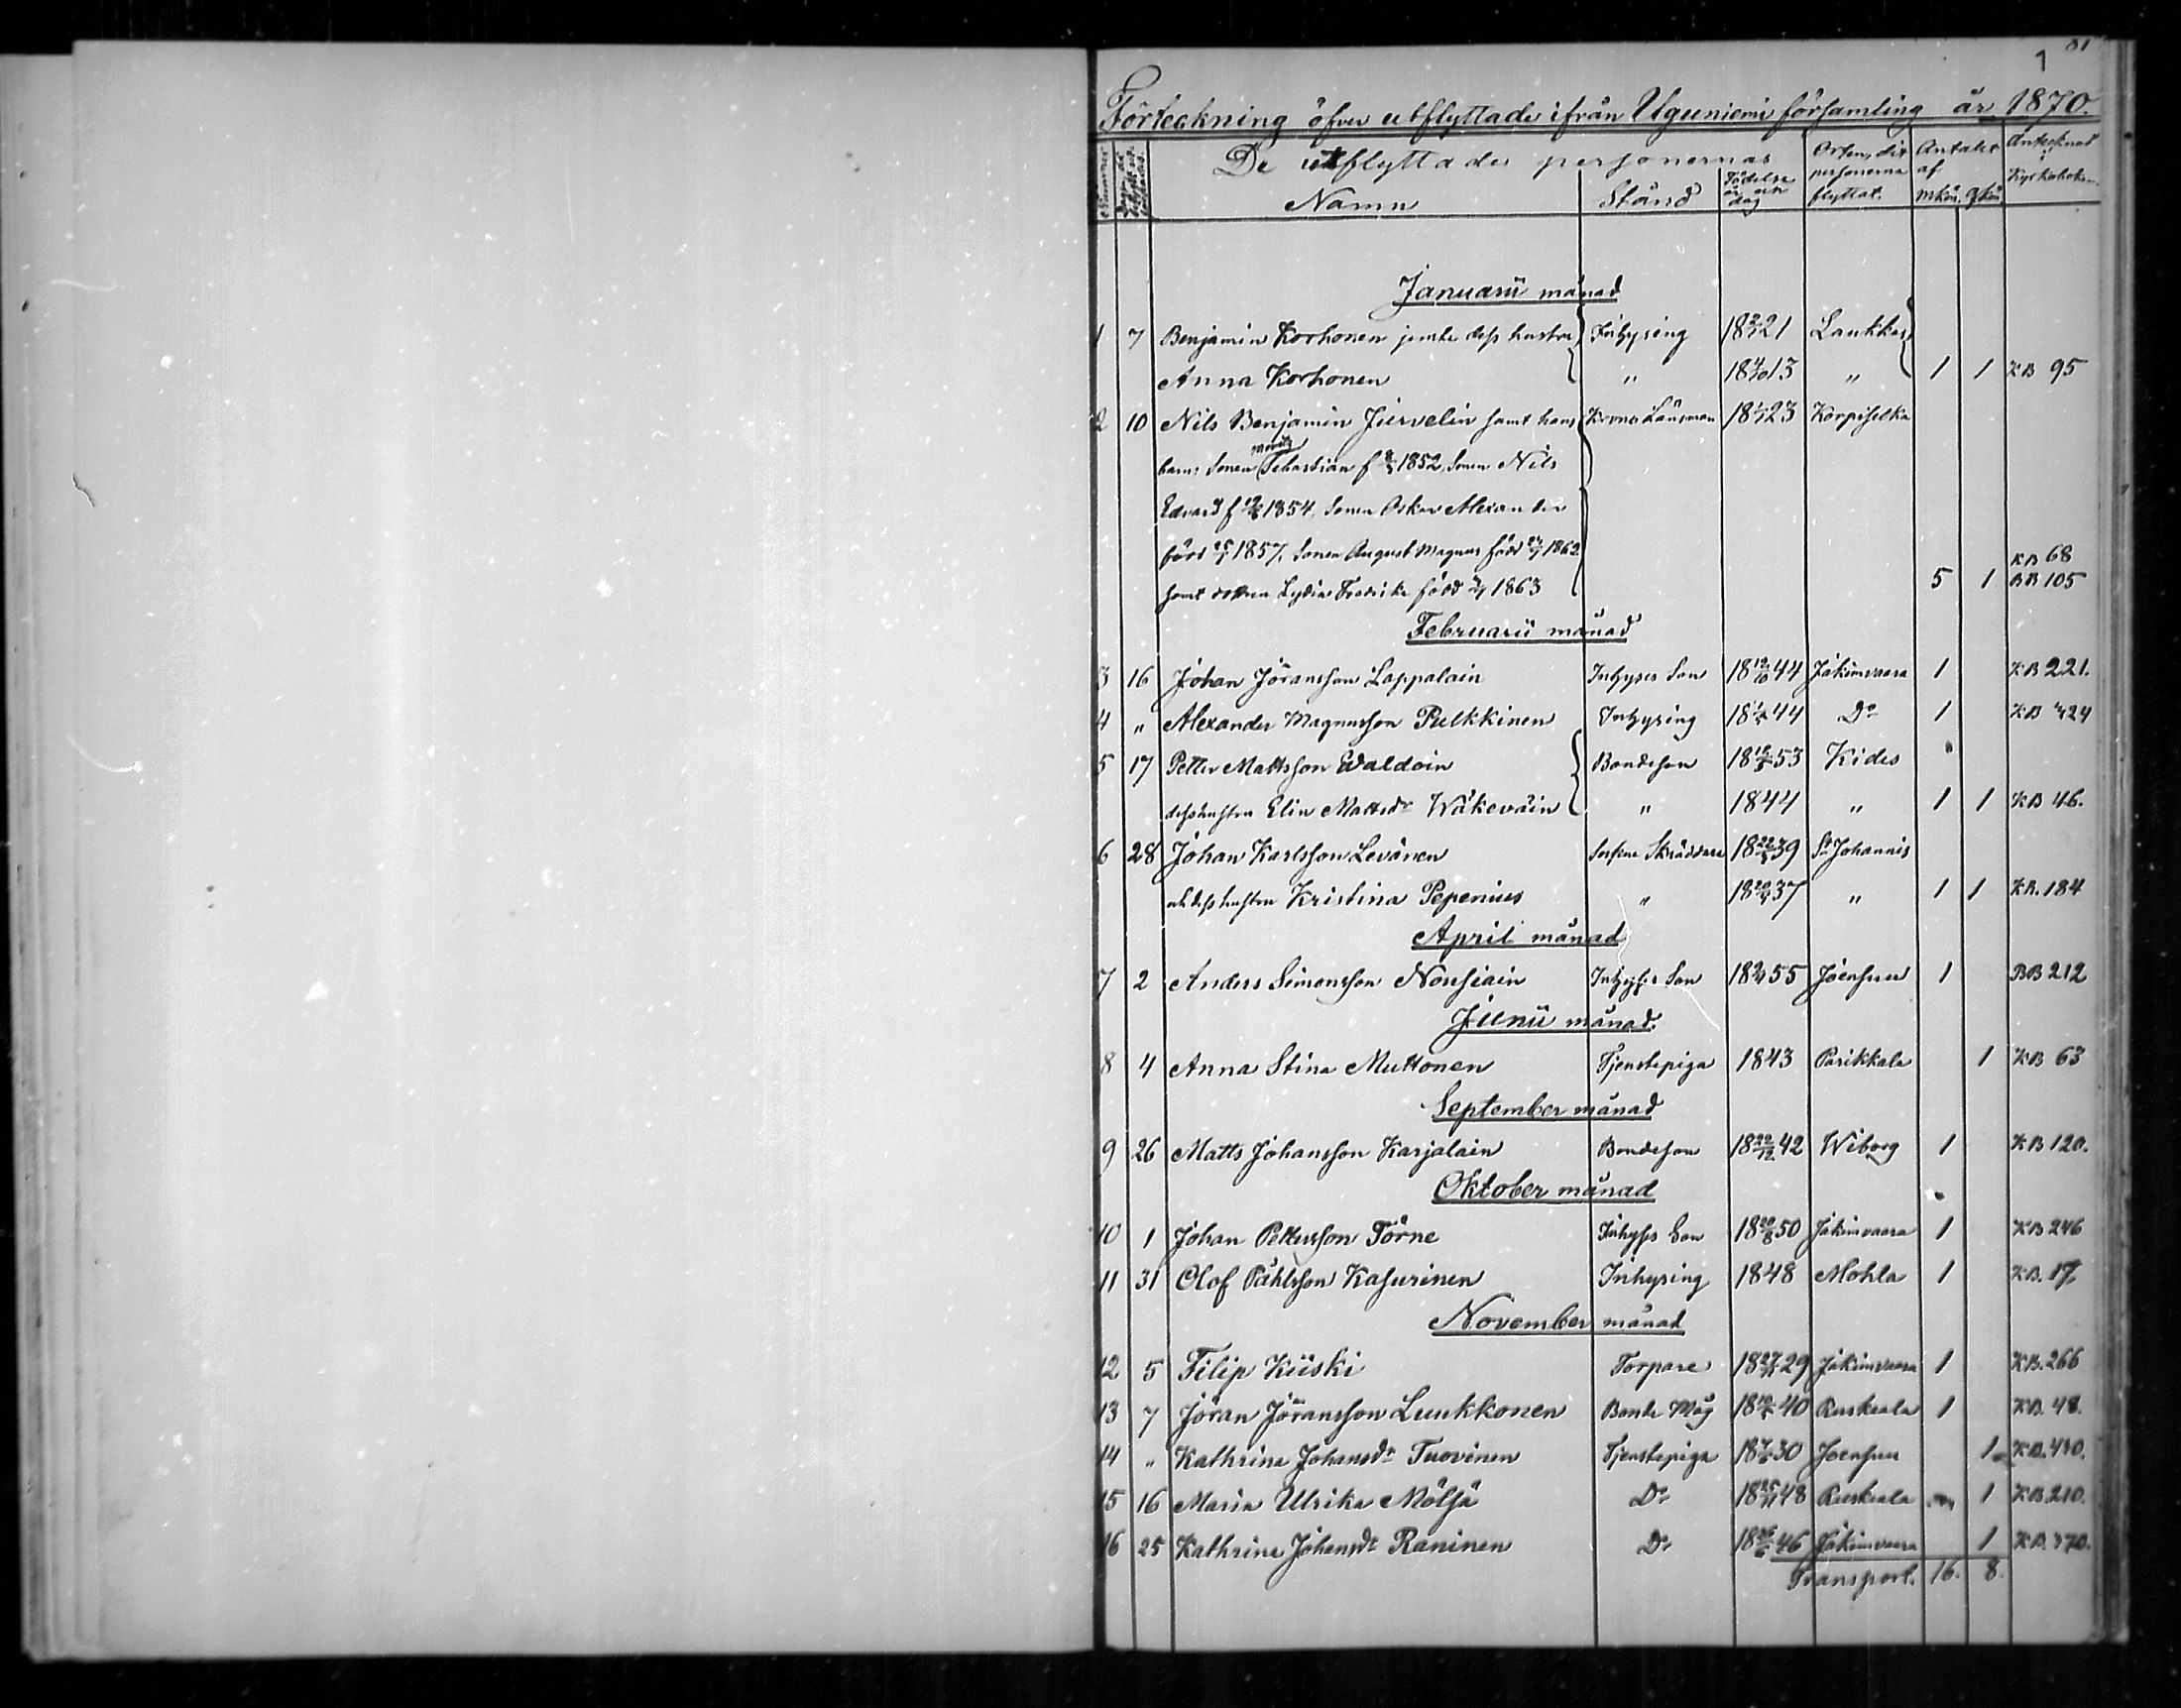 1
Förteckning öfver utflyttade ifrån Uguniemi församling år 1870.
De utflyttade personernas
Namn Stånd Födelse år och dag Orten, dit personerna flyttat. Antalet af Mkön. Qkön Antecknad i Kyrkoboken
Januarii månad
1 7 Benjamin Korhonen jemte dess hustru Inhysing 1821 Laukkas
Anna Korhonen " 18 4/10 13 " 1 1 KB 95
2 10 Nils Benjamin Jurvelin samt hans Krono Länsman 1823 Korpiselka
barn: Sonen Moritz Sebastian f 1852, Sonen Nils
Edvard f 1854, Sonen Oskar Alexander
född 1857, Sonen August Magnus född 1862
samt dottren Lydia Fredrika född 1863 5 1 KB 68 BB 105
Februarii månad
3 16 Johan Jöransson Lappalain Inhyses Son 18 12/10 44 Jakimvaara 1 KB 221.
4 " Alexander Magnusson Pulkkinen Inhysing 1844 Do 1 KB 424
5 17 Petter Mattsson Waldoin Bondeson 1853 Kides
dess hustru Elin Mattsdr Wäkeväin " 1844 " 1 1 KB 46.
6 28 Johan Karlsson Levänen Sockne Skräddare 1839 St Johannis
och dess hustru Kristina Pepenius " 1837 " 1 1 KB. 184
April månad
7 2 Anders Simonsson Nousiain Inhyses Son 1855 Joensuu 1 BB 212
Junii månad.
8 4 Anna Stina Muttonen Tjenstepiga 1843 Parikkala 1 KB 63
September månad
9 26 Matts Johansson Karjalain Bondeson 18 22/12 42 Wiborg 1 KB 120.
Oktober månad
10 1 Johan Pettersson Törne Inhyses Son 18 20/8 50 Jakimvaara 1 KB 246
11 31 Olof Påhlsson Kasurinen Inhysing 1848 Mohla 1 KB. 17
November månad
12 5 Filip Kiiski Torpare 1829 Jakimvaara 1 KB. 266
13 7 Jöran Jöransson Luukkonen Bonde Måg 1840 Ruskeala 1 KB. 48.
14 " Kathrina Johansdr Tuovinen Tjenstepiga 1830 Joensuu 1 KB. 410.
15 16 Maria Ulrika Mölsä Do 18 25/11 48 Ruskeala 1 KB. 210.
16 25 Kathrina Johansdr Raninen Do 18 26/6 46 Jakimvaara 1 KB. 370.
Transport. 16. 8.